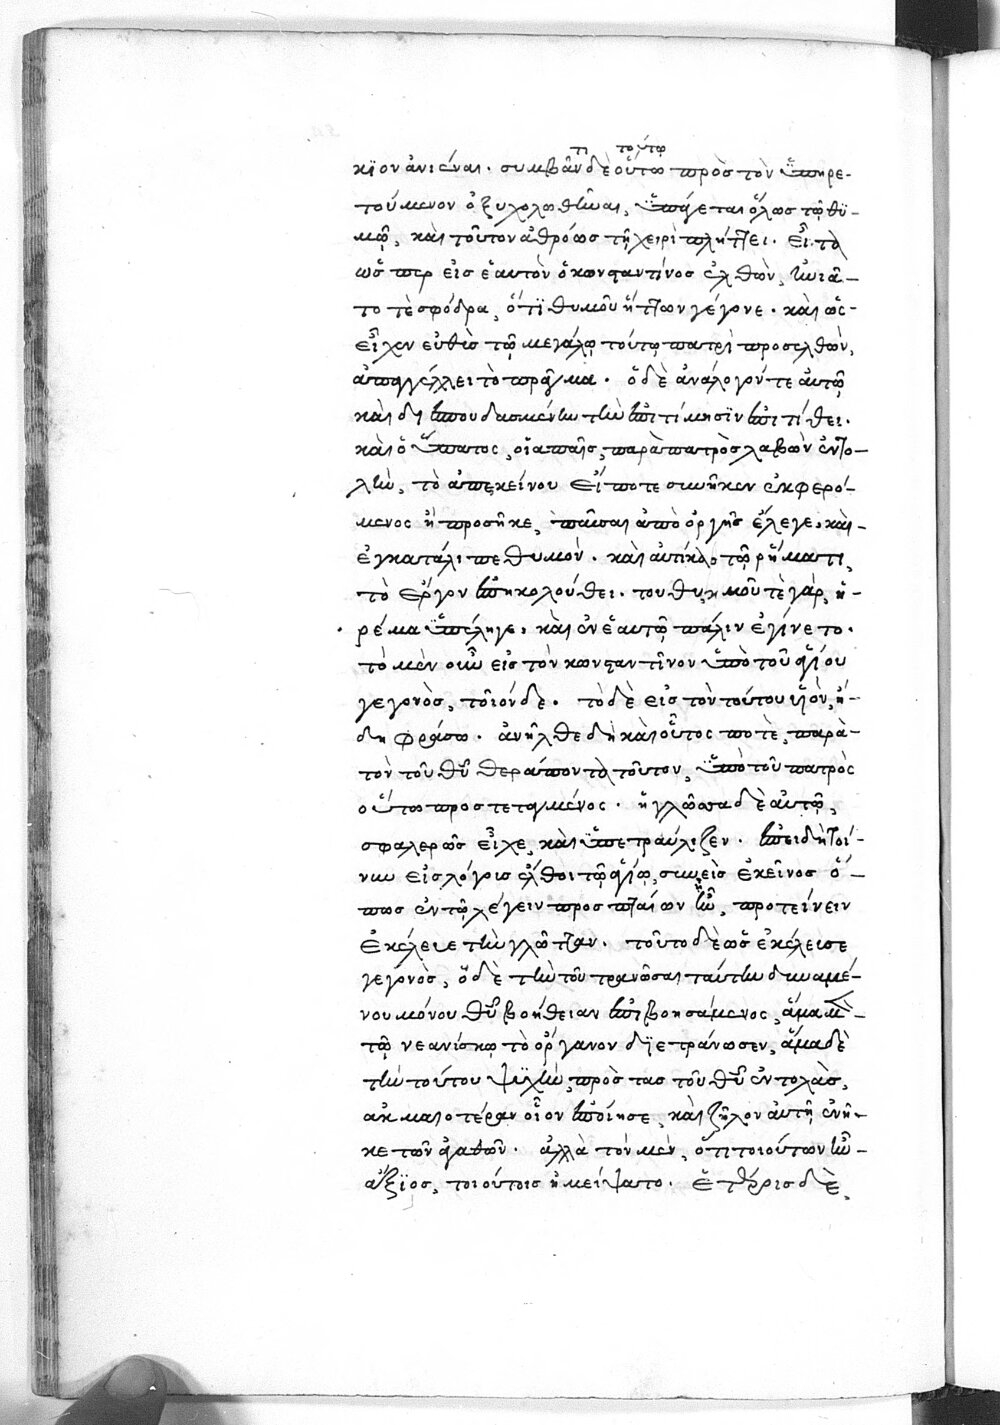 τι τούτω
κιον ἀνιέναι. συμβὰν δὲ οὕτω πρὸς τὸν ὑπηρε-
τούμενον ὀξυχολωθῆναι, ὑπάγεται ὅλως τῷ θυ-
μῷ, καὶ τοῦτον ἀθρόως τῇ χειρὶ πλήττει. εἶτα
ὥσπερ εἰς ἑαυτὸν ὁ κωνσταντίνος ἐλθὼν, ἠνιᾶ-
το τὲ σφόδρα, ὅτι θυμοῦ ἥττων γέγονε. καὶ ὡς
εἶχεν εὐθὺς τῷ μεγάλῳ τούτῳ πατρὶ προσελθὼν,
ἀπαγγέλλει τὸ πρᾶγμα. ὁ δὲ ἀνάλογόν τε αὐτῷ
καὶ δὴ ἐσπουδασμένην τὴν ἐπιτίμησιν ἐπιτίθει.
καὶ ὁ ὕπατος, οἷα παῖς, παρὰ πατρὸς λαβὼν ἐντο-
λὴν, τὸ ἀπεκείνου εἴποτε συνῆκεν ἐκφερό-
μενος ἢ προσῆκε, παῦσαι ἀπὸ ὀργῆς ἔλεγε, καὶ
ἐγκατάλιπε θυμόν. καὶ αὐτίκα τῷ ῥήματι,
τὸ ἔργον ἐπηκολούθει. του θυμοῦ τὲ γὰρ, ἠ-
ρέμα ὑπέληγε, καὶ ἐν ἑαυτῷ πάλιν ἐγίνετο.
τὸ μὲν οὖν εἰς τὸν κωνσταντῖνον ὑπὸ τοῦ ἁγίου
γεγονὸς, τοῖόνδε. τὸ δὲ εἰς τὸν τούτου υἱὸν, ἤ-
δη φράσω. ἀνῆλθε δὴ καὶ οὗτος ποτὲ, παρὰ
τὸν τοῦ θῦ θεράποντα τοῦτον, ὑπὸ τοῦ πατρὸς
οὕτω προστεταγμένος. ἡ γλῶσσα δὲ αὐτῷ,
σφαλερῶς εἶχε, καὶ ὑπετραύλιζεν. ἐπειδὴ τοί-
νυν εἰς λόγους ἔλθοι τῷ ἁγίῳ, συνεὶς ἐκεῖνος ὅ-
πως ἐν τῷ λέγειν προσπταίων ἦν, προτείνειν
ἐκέλευε τὴν γλῶτταν. τοῦτο δὲ ὡς ἐκέλευσε
γεγονὸς, ὁ δὲ τὴν τοῦ τρανῶσαι ταύτην δυναμέ-
νου μόνου θῦ βοήθειαν ἐπιβοησάμενος, ἅμα μὲν
τῷ νεανίσκῳ τὸ ὄργανον διετράνωσεν, ἅμα δὲ
τὴν τούτου ψυχὴν, πρὸς τὰς τοῦ θῦ ἐντολὰς,
ἀκμαιοτέραν οἷον ἐποίησε, καὶ ζῆλον αὐτῇ ἐνῆ-
κε τῶν ἀγαθῶν. ἀλλὰ τὸν μὲν, ὅτι τοιούτων ἦν
ἄξιος, τοιούτοις ἠμείψατο. ἑτέροις δὲ,